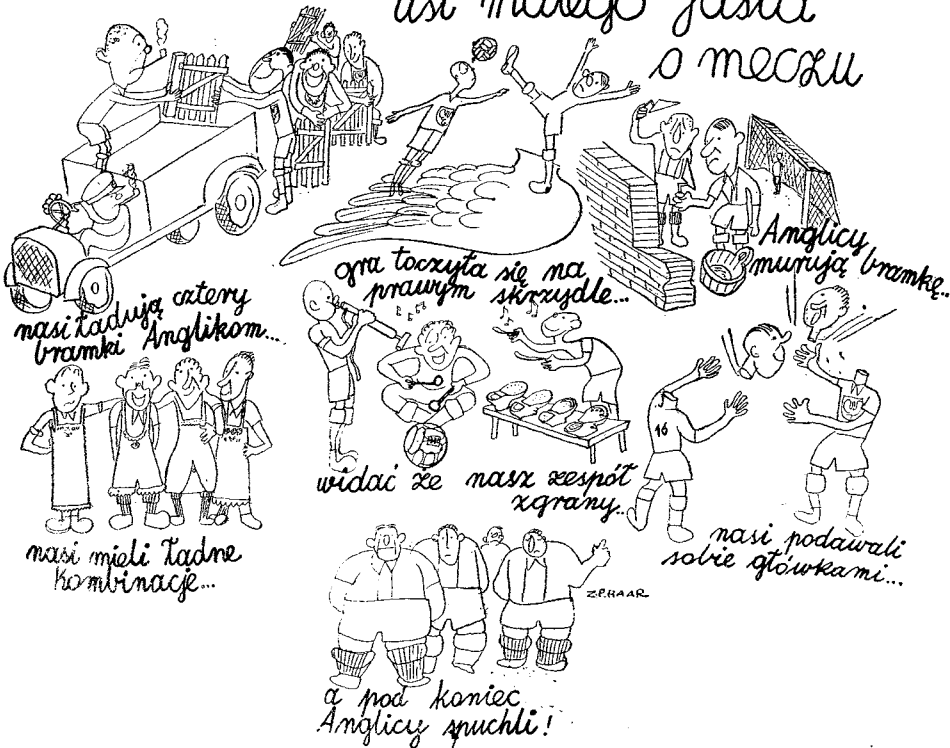 małego Jasia
o meczu
nasi ładują cztery
bramki Anglikom...
gra toczyła się na
prawym skrzydle...
Anglicy
murują bramkę..
nasi mieli ładne
kombinacje...
widać że nasz zespół
zgrany..
16
nasi podawali
sobie główkami...
Z.P.HAAR
a pod koniec
Anglicy spuchli!